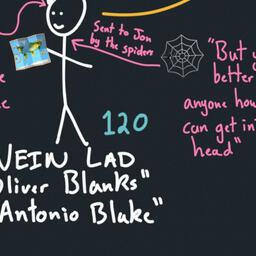 Sent to Jon
by the spiders
"But y
better
anyone how
can get in
head"
120
VEIN LAD
Oliver Blanks"
Antonio Blake"